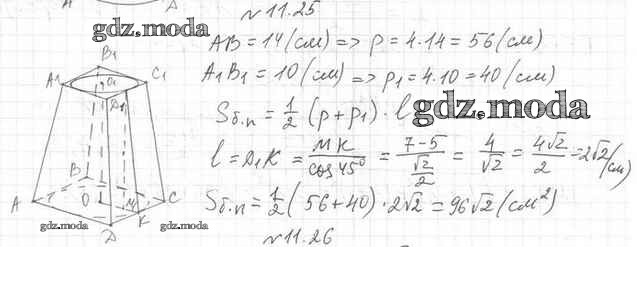 N 11.25
gdz.moda
AB = 14 (см) => p = 4·14 = 56 (см)
A₁B₁ = 10 (см) => p₁ = 4·10 = 40 (см)
Sб.п = 1/2 (p + p₁) · l
gdz.moda
l = D₁K = MK/cos 45° = (7-5)/(√2/2) = 4/√2 = 4√2/2 = 2√2 (см)
Sб.п = 1/2 (56 + 40) · 2√2 = 96√2 (см²)
N 11.26
B₁
A₁
O₁
C₁
D₁
B
A
O
M
C
K
D
gdz.moda
gdz.moda